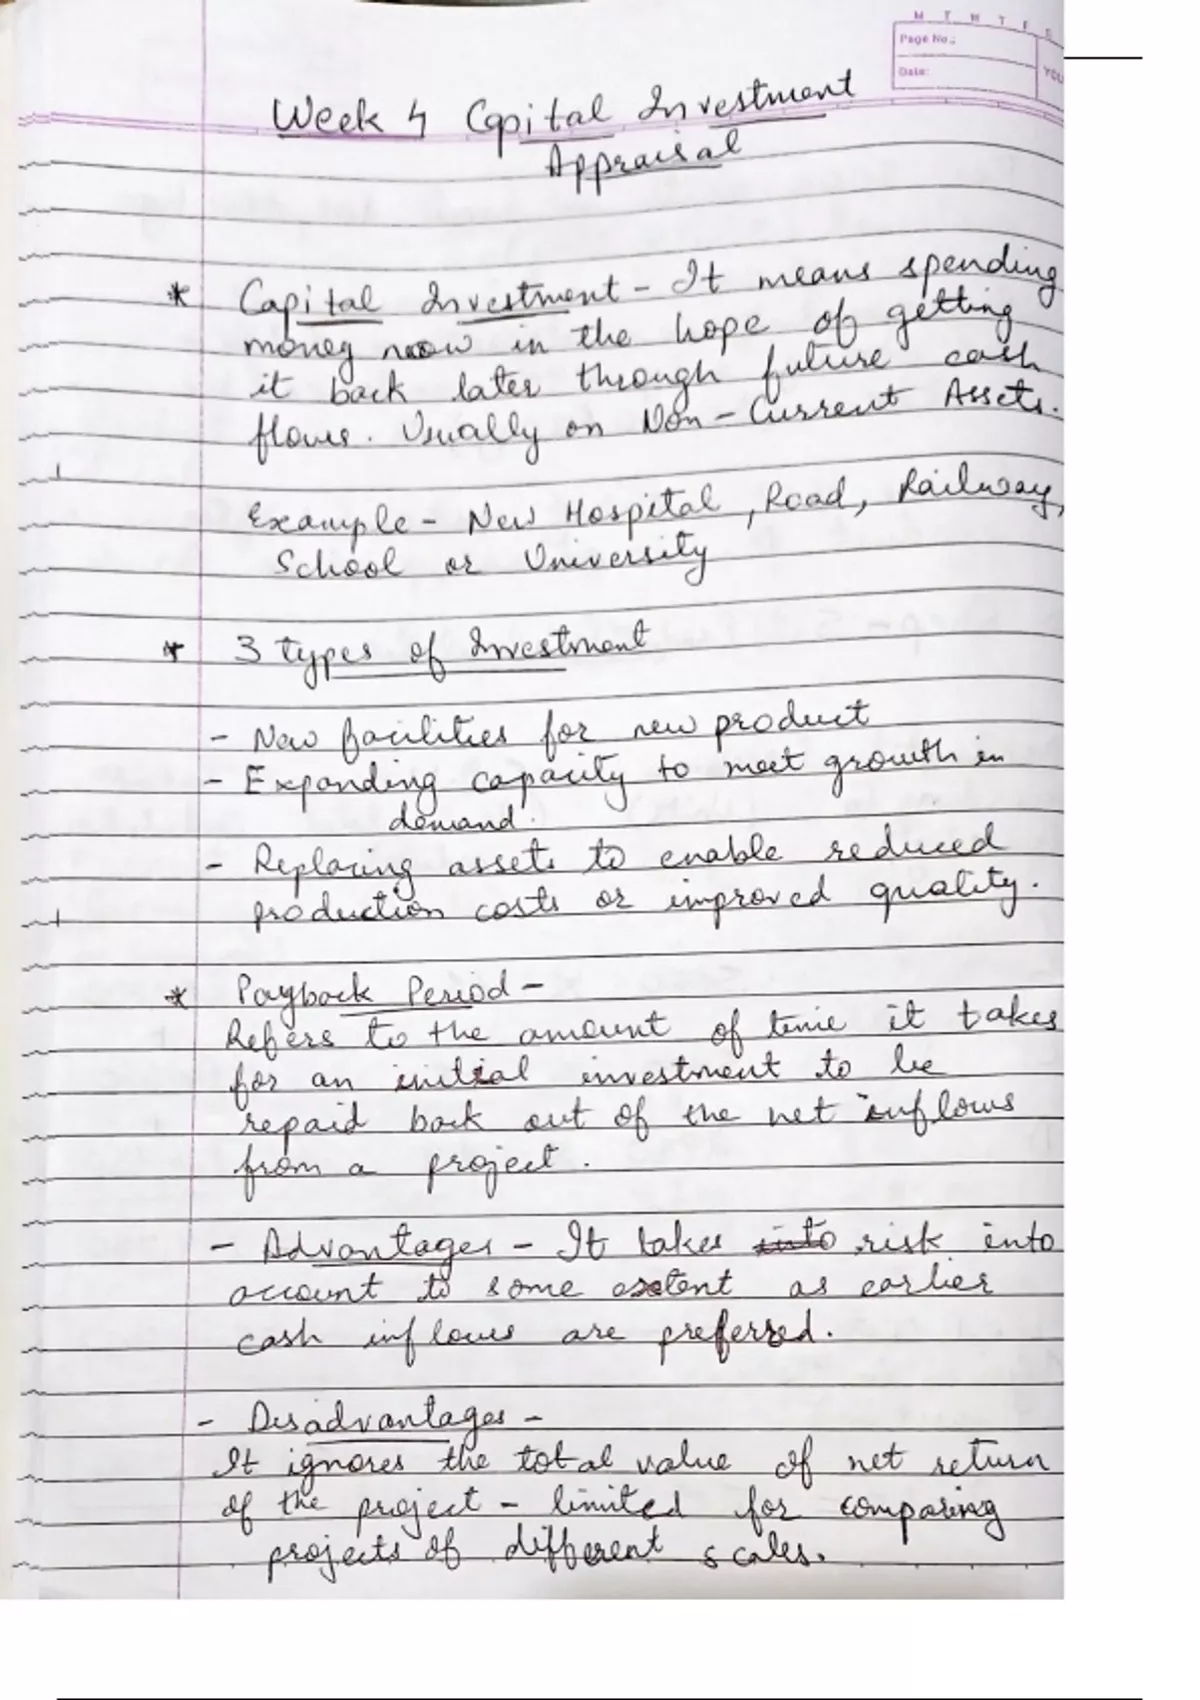 M T W T F S
Page No.:
Date:
YOU
Week 4 Capital Investment
Appraisal
* Capital Investment - It means spending
money now in the hope of getting
it back later through future cash
flows. Usually on Non-Current Assets.
Example - New Hospital, Road, Railway,
School or University
* 3 types of Investment
- New facilities for new product
- Expanding capacity to meet growth in
demand.
- Replacing assets to enable reduced
production costs or improved quality.
* Payback Period -
Refers to the amount of time it takes
for an initial investment to be
repaid back out of the net inflows
from a project.
- Advantages - It takes into risk into
account to some extent as earlier
cash inflows are preferred.
- Disadvantages -
It ignores the total value of net return
of the project - limited for comparing
projects of different scales.